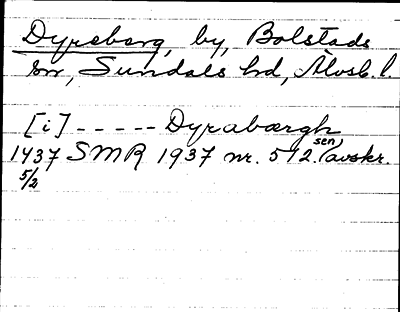 Dyreberg, by, Bolstads
sn, Sundals hd, Älvsb. l.
[i] ----- Dyrabærgh
1437 SMR 1937 nr. 512. (sen avskr.
5/2